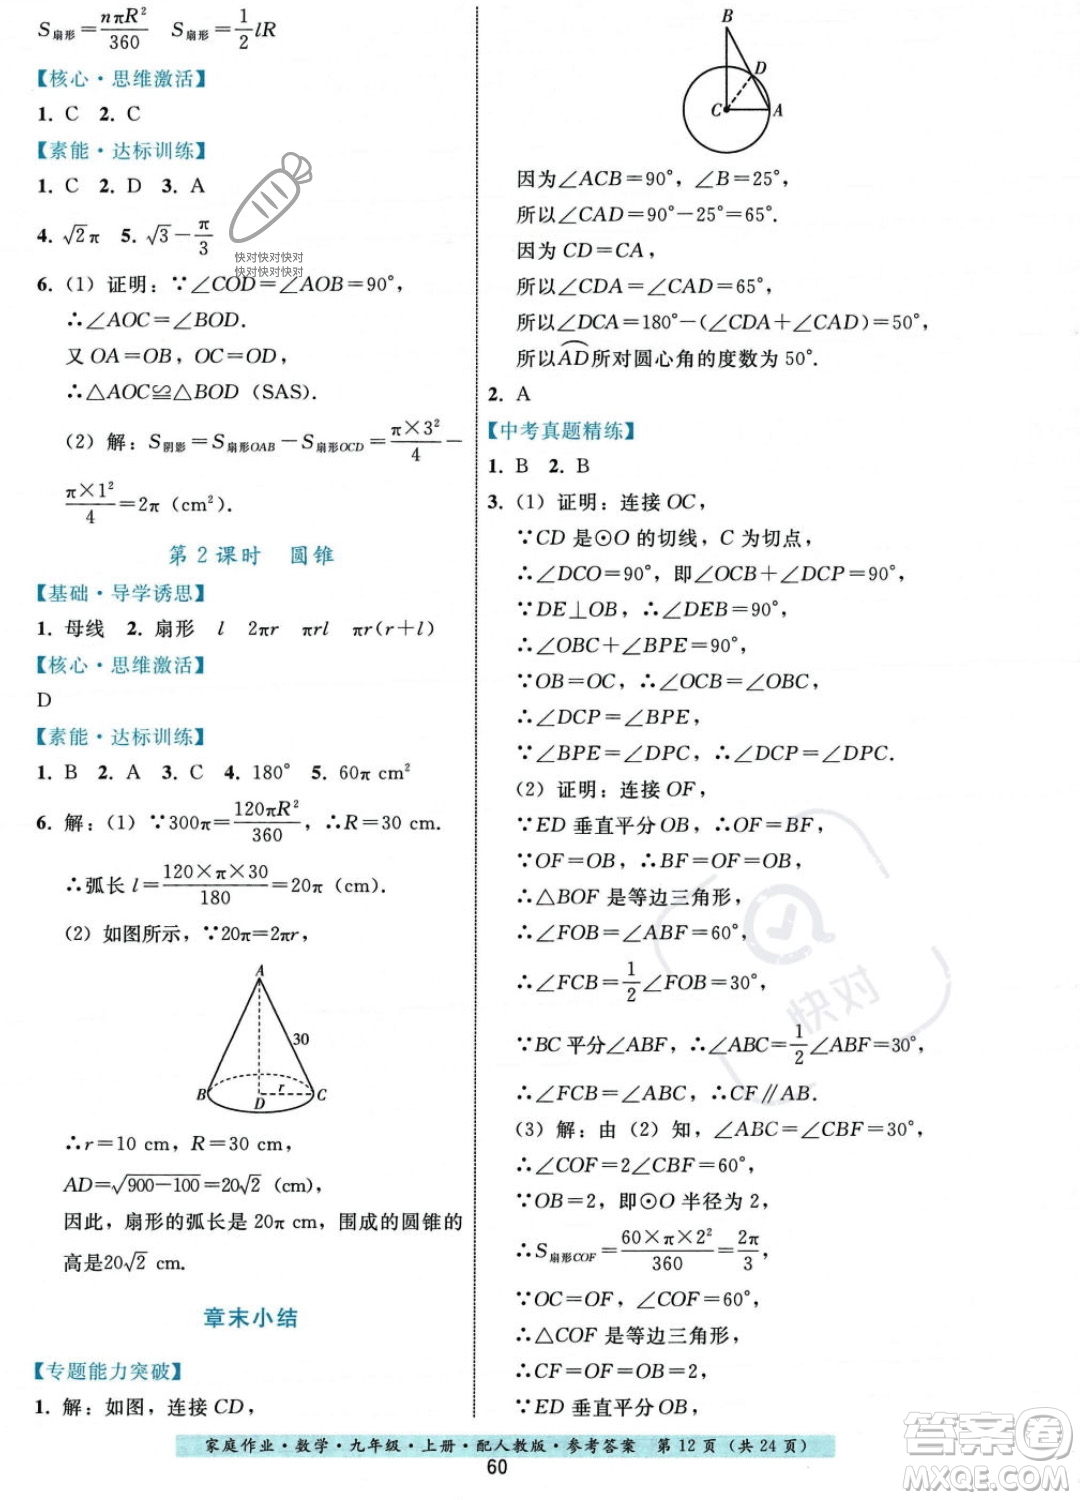 S扇形=nπR²/360  S扇形=1/2 lR
【核心·思维激活】
1. C  2. C
【素能·达标训练】
1. C  2. D  3. A
4. √2π  5. √3-π/3
快对快对快对
快对快对快对
6. (1) 证明：∵∠COD=∠AOB=90°，
∴∠AOC=∠BOD.
又 OA=OB，OC=OD，
∴△AOC≌△BOD (SAS).
(2) 解：S阴影=S扇形OAB-S扇形OCD=π×3²/4-
π×1²/4=2π (cm²).
第 2 课时  圆锥
【基础·导学诱思】
1. 母线  2. 扇形  l  2πr  πrl  πr(r+l)
【核心·思维激活】
D
【素能·达标训练】
1. B  2. A  3. C  4. 180°  5. 60π cm²
6. 解：(1) ∵300π=120πR²/360，∴R=30 cm.
∴弧长 l=120×π×30/180=20π (cm).
(2) 如图所示，∵20π=2πr，
A
30
B
D
r
C
∴r=10 cm，R=30 cm，
AD=√900-100=20√2 (cm)，
因此，扇形的弧长是 20π cm，围成的圆锥的
高是20√2 cm.
章末小结
【专题能力突破】
1. 解：如图，连接 CD，
B
D
C
A
因为∠ACB=90°，∠B=25°，
所以∠CAD=90°-25°=65°.
因为 CD=CA，
所以∠CDA=∠CAD=65°，
所以∠DCA=180°-(∠CDA+∠CAD)=50°，
所以AD所对圆心角的度数为 50°.
2. A
【中考真题精练】
1. B  2. B
3. (1) 证明：连接 OC，
∵CD 是⊙O 的切线，C 为切点，
∴∠DCO=90°，即∠OCB+∠DCP=90°，
∵DE⊥OB，∴∠DEB=90°，
∴∠OBC+∠BPE=90°，
∵OB=OC，∴∠OCB=∠OBC，
∴∠DCP=∠BPE，
∵∠BPE=∠DPC，∴∠DPC=∠DCP.
(2) 证明：连接 OF，
∵ED 垂直平分 OB，∴OF=BF，
∵OF=OB，∴BF=OF=OB，
∴△BOF 是等边三角形，
∴∠FOB=∠ABF=60°，
∴∠FCB=1/2∠FOB=30°，
∵BC 平分∠ABF，∴∠ABC=1/2∠ABF=30°，
∴∠FCB=∠ABC，∴CF∥AB.
(3) 解：由 (2) 知，∠ABC=∠CBF=30°，
∴∠COF=2∠CBF=60°，
∵OB=2，即⊙O 半径为 2，
∴S扇形COF=60×π×2²/360=2π/3，
∵OC=OF，∠COF=60°，
∴△COF 是等边三角形，
∴CF=OF=OB=2，
∵ED 垂直平分 OB，
快对
家庭作业·数学·九年级·上册·配人教版·参考答案  第 12 页 (共 24 页)
60
答案圈
MXQE.COM